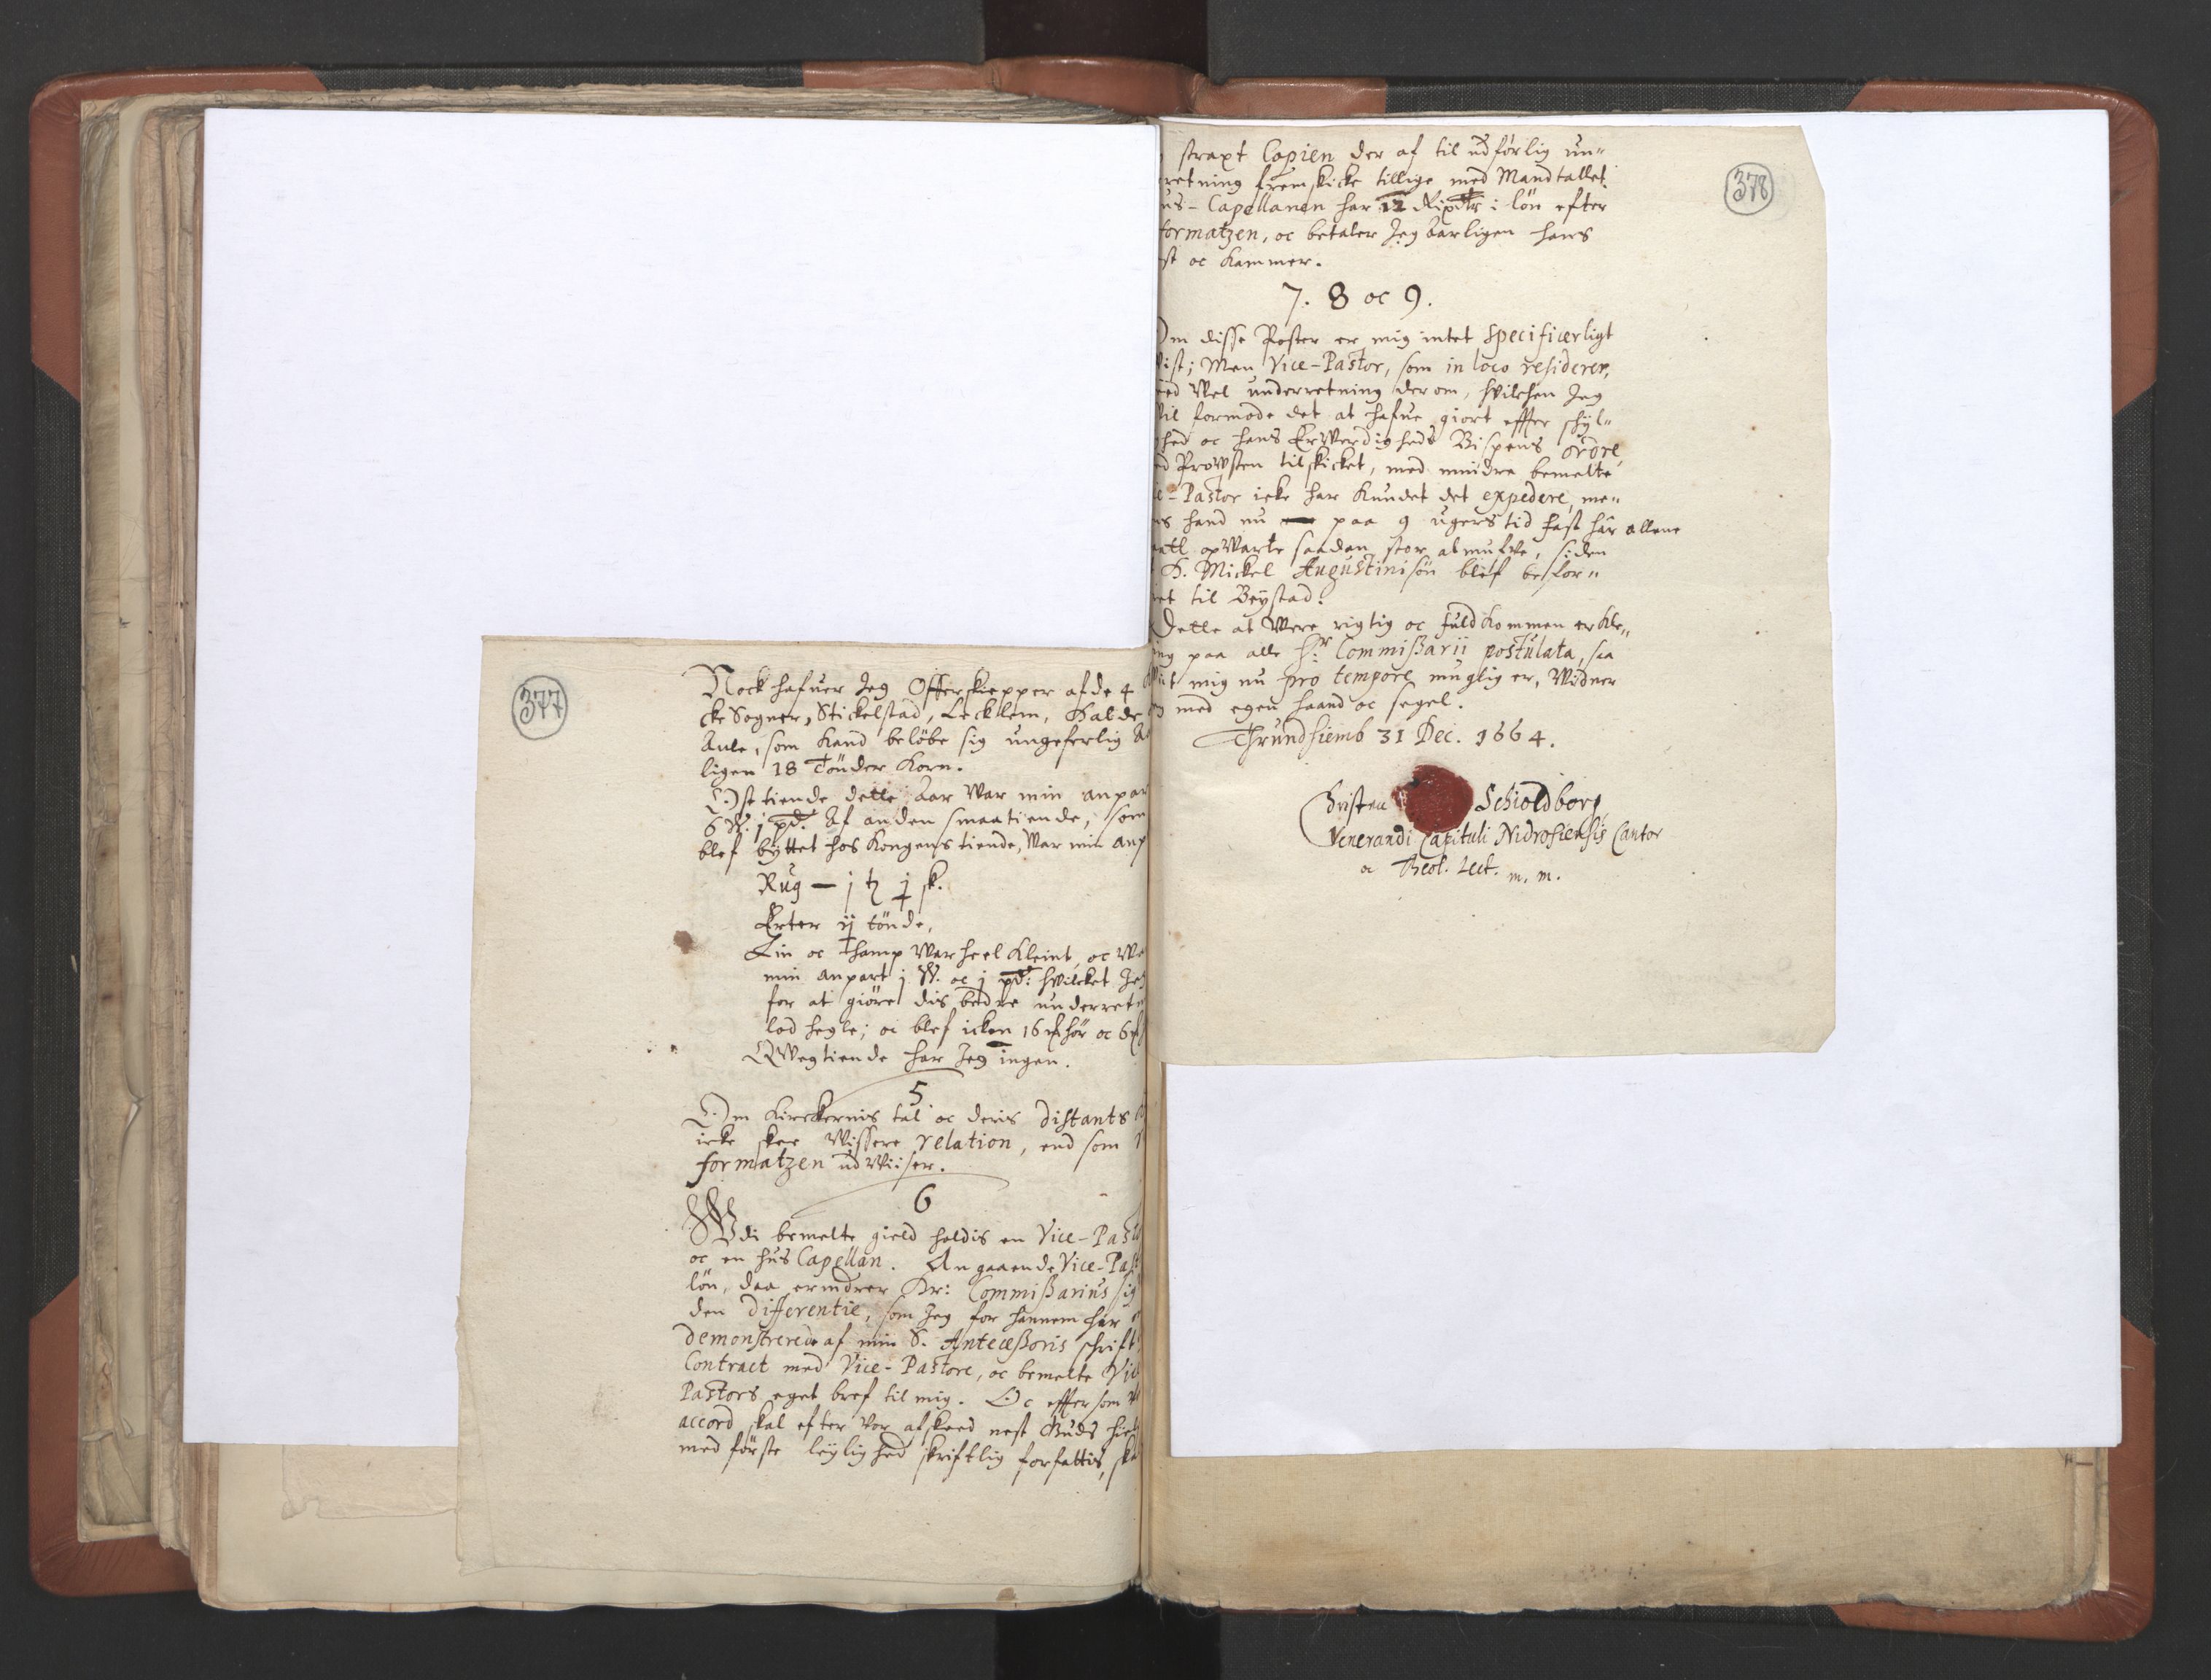 377
Nock hafuer Jeg Offerskiepper af de 4
cke Sogner, Stickelstad, Lecklem, Halde
Aule, som kand beløbe sig ungeferlig
ligen 18 Tönder Korn.
Ost tiende dette Aar War min anpar
6 W. j pd. Af anden smaatiende, som
blef byttet hos Kongens tiende, War min anp
Rug — j
Erter ij tönde,
Lin oc Hamp War heel Kleint, oc
min anpart j W. oc j pd: hvilcket Jeg
for at giöre dis bedre underretn
lod hegle; oc blef icken 16 hör oc 6
QWegtiende har Jeg ingen.
5
Om Kirckernis tal oc deris distants
icke skee Wissere relation, end som
formatzen udWiiser.
6
Udi bemelte gield holdis en Vice-Pasto
oc en hus Capellan. Angaaende Vice-Past
lön, daa erindrer Hr: Commißarius sig
den differentie, som Jeg for hannem har
demonstrerede af min S. Anteceßoris schrift
Contract med Vice-Pastore, oc bemelte Vice
Pastors eget bref til mig. Oc effter som
accord skal efter Vor afskeed nest Guds hielp
med förste leylighed skriftlig forfattis, ska
378
straxt Copien der af til udförlig un"
retning fremskicke tillige med Mandtallet.
us-Capellanen har 12 Rixdlr i lön efter
formatzen, oc betaler Jeg Aarligen hans
st oc Kammer.
7. 8 oc 9.
Om disse Poster er mig intet specificerligt
vist; Men Vice-Pastor, som in loco residerer,
ved Vel underretning derom, hvilchen Jeg
Vil formode det at hafue giort effter schyl"
hed oc hans ErVerdigheds Bispens ordre
ed Prowsten tilskicket, med mindre bemelte
e-Pastor icke har Kundet det expedere, me"
ns hand nu paa 9 ugers tid fast har allene
att opVarte saadan stor almufve, siden
H. Mickel Augustinisön blef besfor"
ret til Beystad.
Dette at Vere rigtig oc fuldKommen erKle"
ing paa alle Hr: Commißarii postulata, saa
Vit mig nu pro tempore muglig er, Vidner
med egen haand oc segel.
Thrundhiemb 31 Dec. 1664.
Christen Schioldborg
Venerandi Capituli Nidrosiensis Cantor
oc Theol. Lect. m. m.